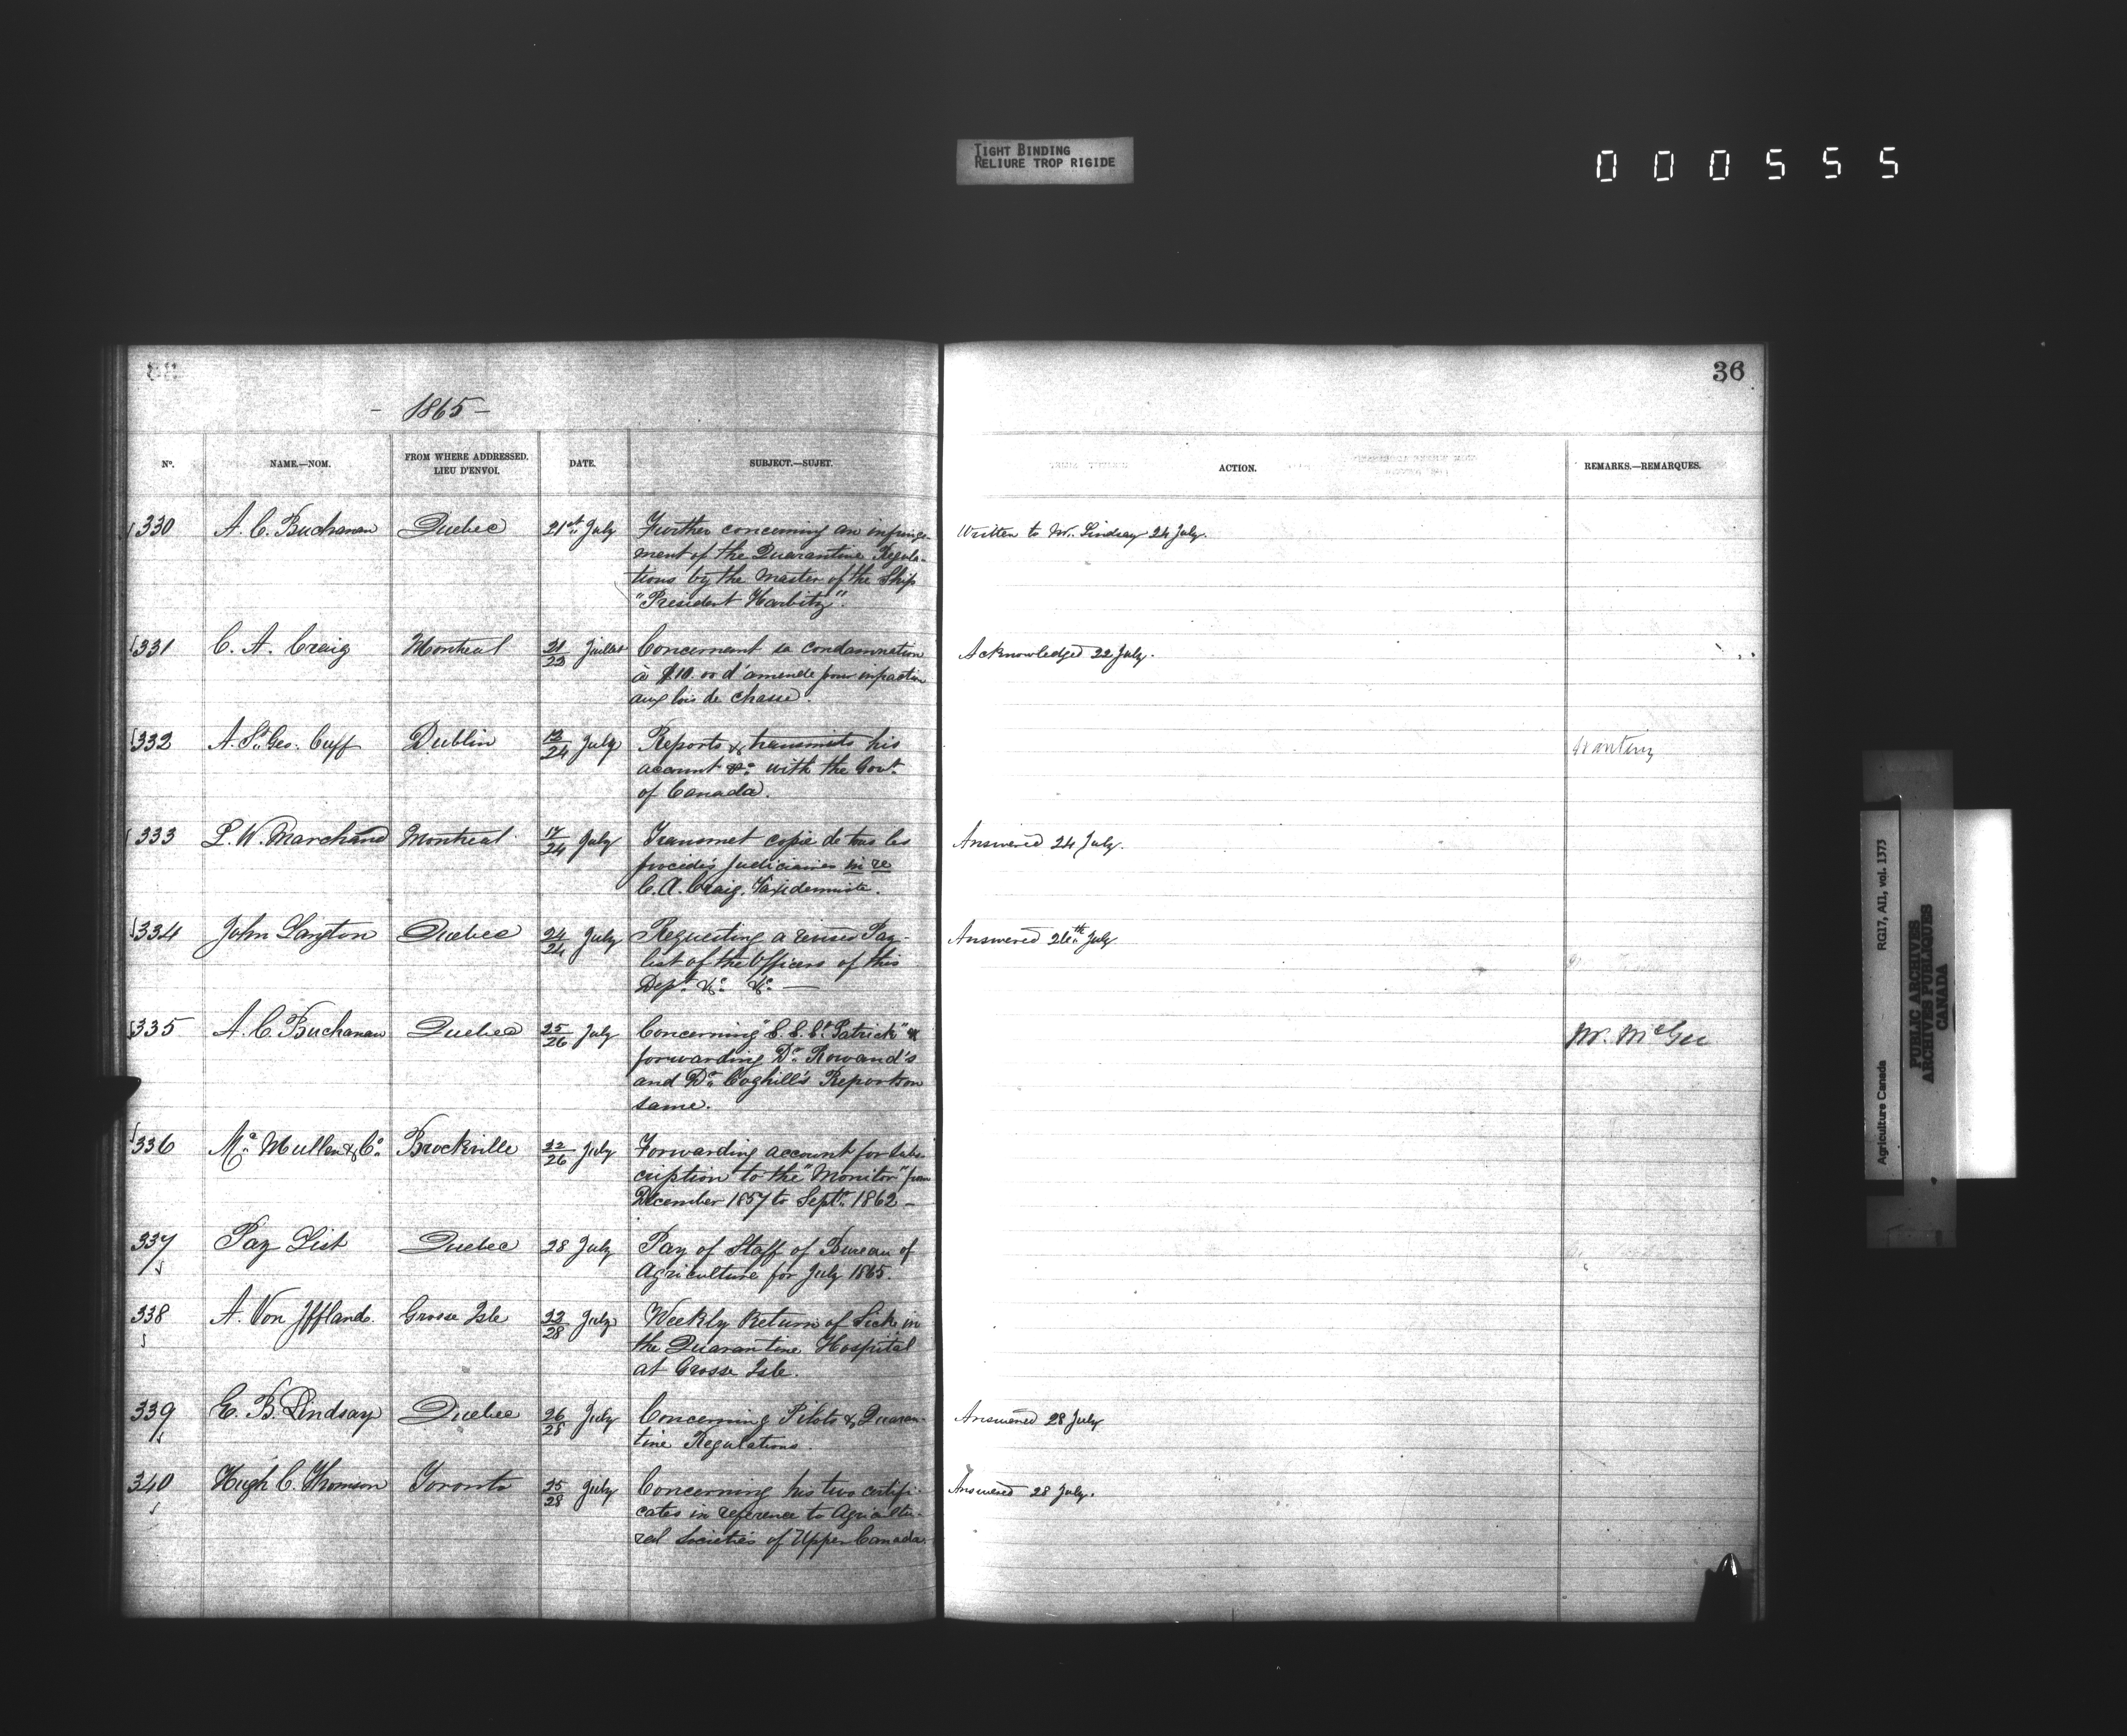 TIGHT BINDING
RELIURE TROP RIGIDE
000555
36
- 1865 -
No. NAME.—NOM. FROM WHERE ADDRESSED. LIEU D'ENVOI. DATE. SUBJECT.—SUJET. ACTION. REMARKS.—REMARQUES.
330 A. C. Buchanan Quebec 21st July Further concerning an infringe- Written to Mr. Lindsay 24 July.
ment of the Quarantine Regula-
tions by the Master of the Ship
"President Harbitz".
331 C. A. Craig Montreal 21/22 Juillet Concernant sa condamnation Acknowledged 22 July.
à $10.00 d'amende pour infraction
aux lois de chasse.
332 A. St. Geo. Cuff Dublin 12/24 July Reports & transmits his Wanting
account &c. with the Govt.
of Canada.
333 L. W. Marchand Montreal 17/24 July Transmet copie de tous les Answered 24 July.
procédés judiciaires in re
C. A. Craig. Taxidermiste.
334 John Langton Quebec 24/24 July Requesting a revised Pay- Answered 26th July
list of the Officers of this
Dept. &c. &c. —
335 A. C. Buchanan Quebec 25/26 July Concerning "S. S. St. Patrick" & Mr. McGee
forwarding Dr. Rowand's
and Dr. Coghill's Report on
same.
336 Mc. Mullen & Co. Brockville 22/26 July Forwarding account for subs-
cription to the "Monitor" from
December 1857 to Septr. 1862 -
337 Pay List Quebec 28 July Pay of Staff of Bureau of
Agriculture for July 1865.
338 A. Von Iffland. Grosse Isle 22/28 July Weekly Return of Sick in
the Quarantine Hospital
at Grosse Isle.
339 E. B. Lindsay Quebec 26/28 July Concerning Pilots & Quaran- Answered 28 July
tine Regulations.
340 Hugh C. Thomson Toronto 25/28 July Concerning his two certifi- Answered 28 July.
cates in reference to Agricultu-
ral Societies of Upper Canada.
Agriculture Canada RG17, AII, vol. 1373
PUBLIC ARCHIVES
ARCHIVES PUBLIQUES
CANADA